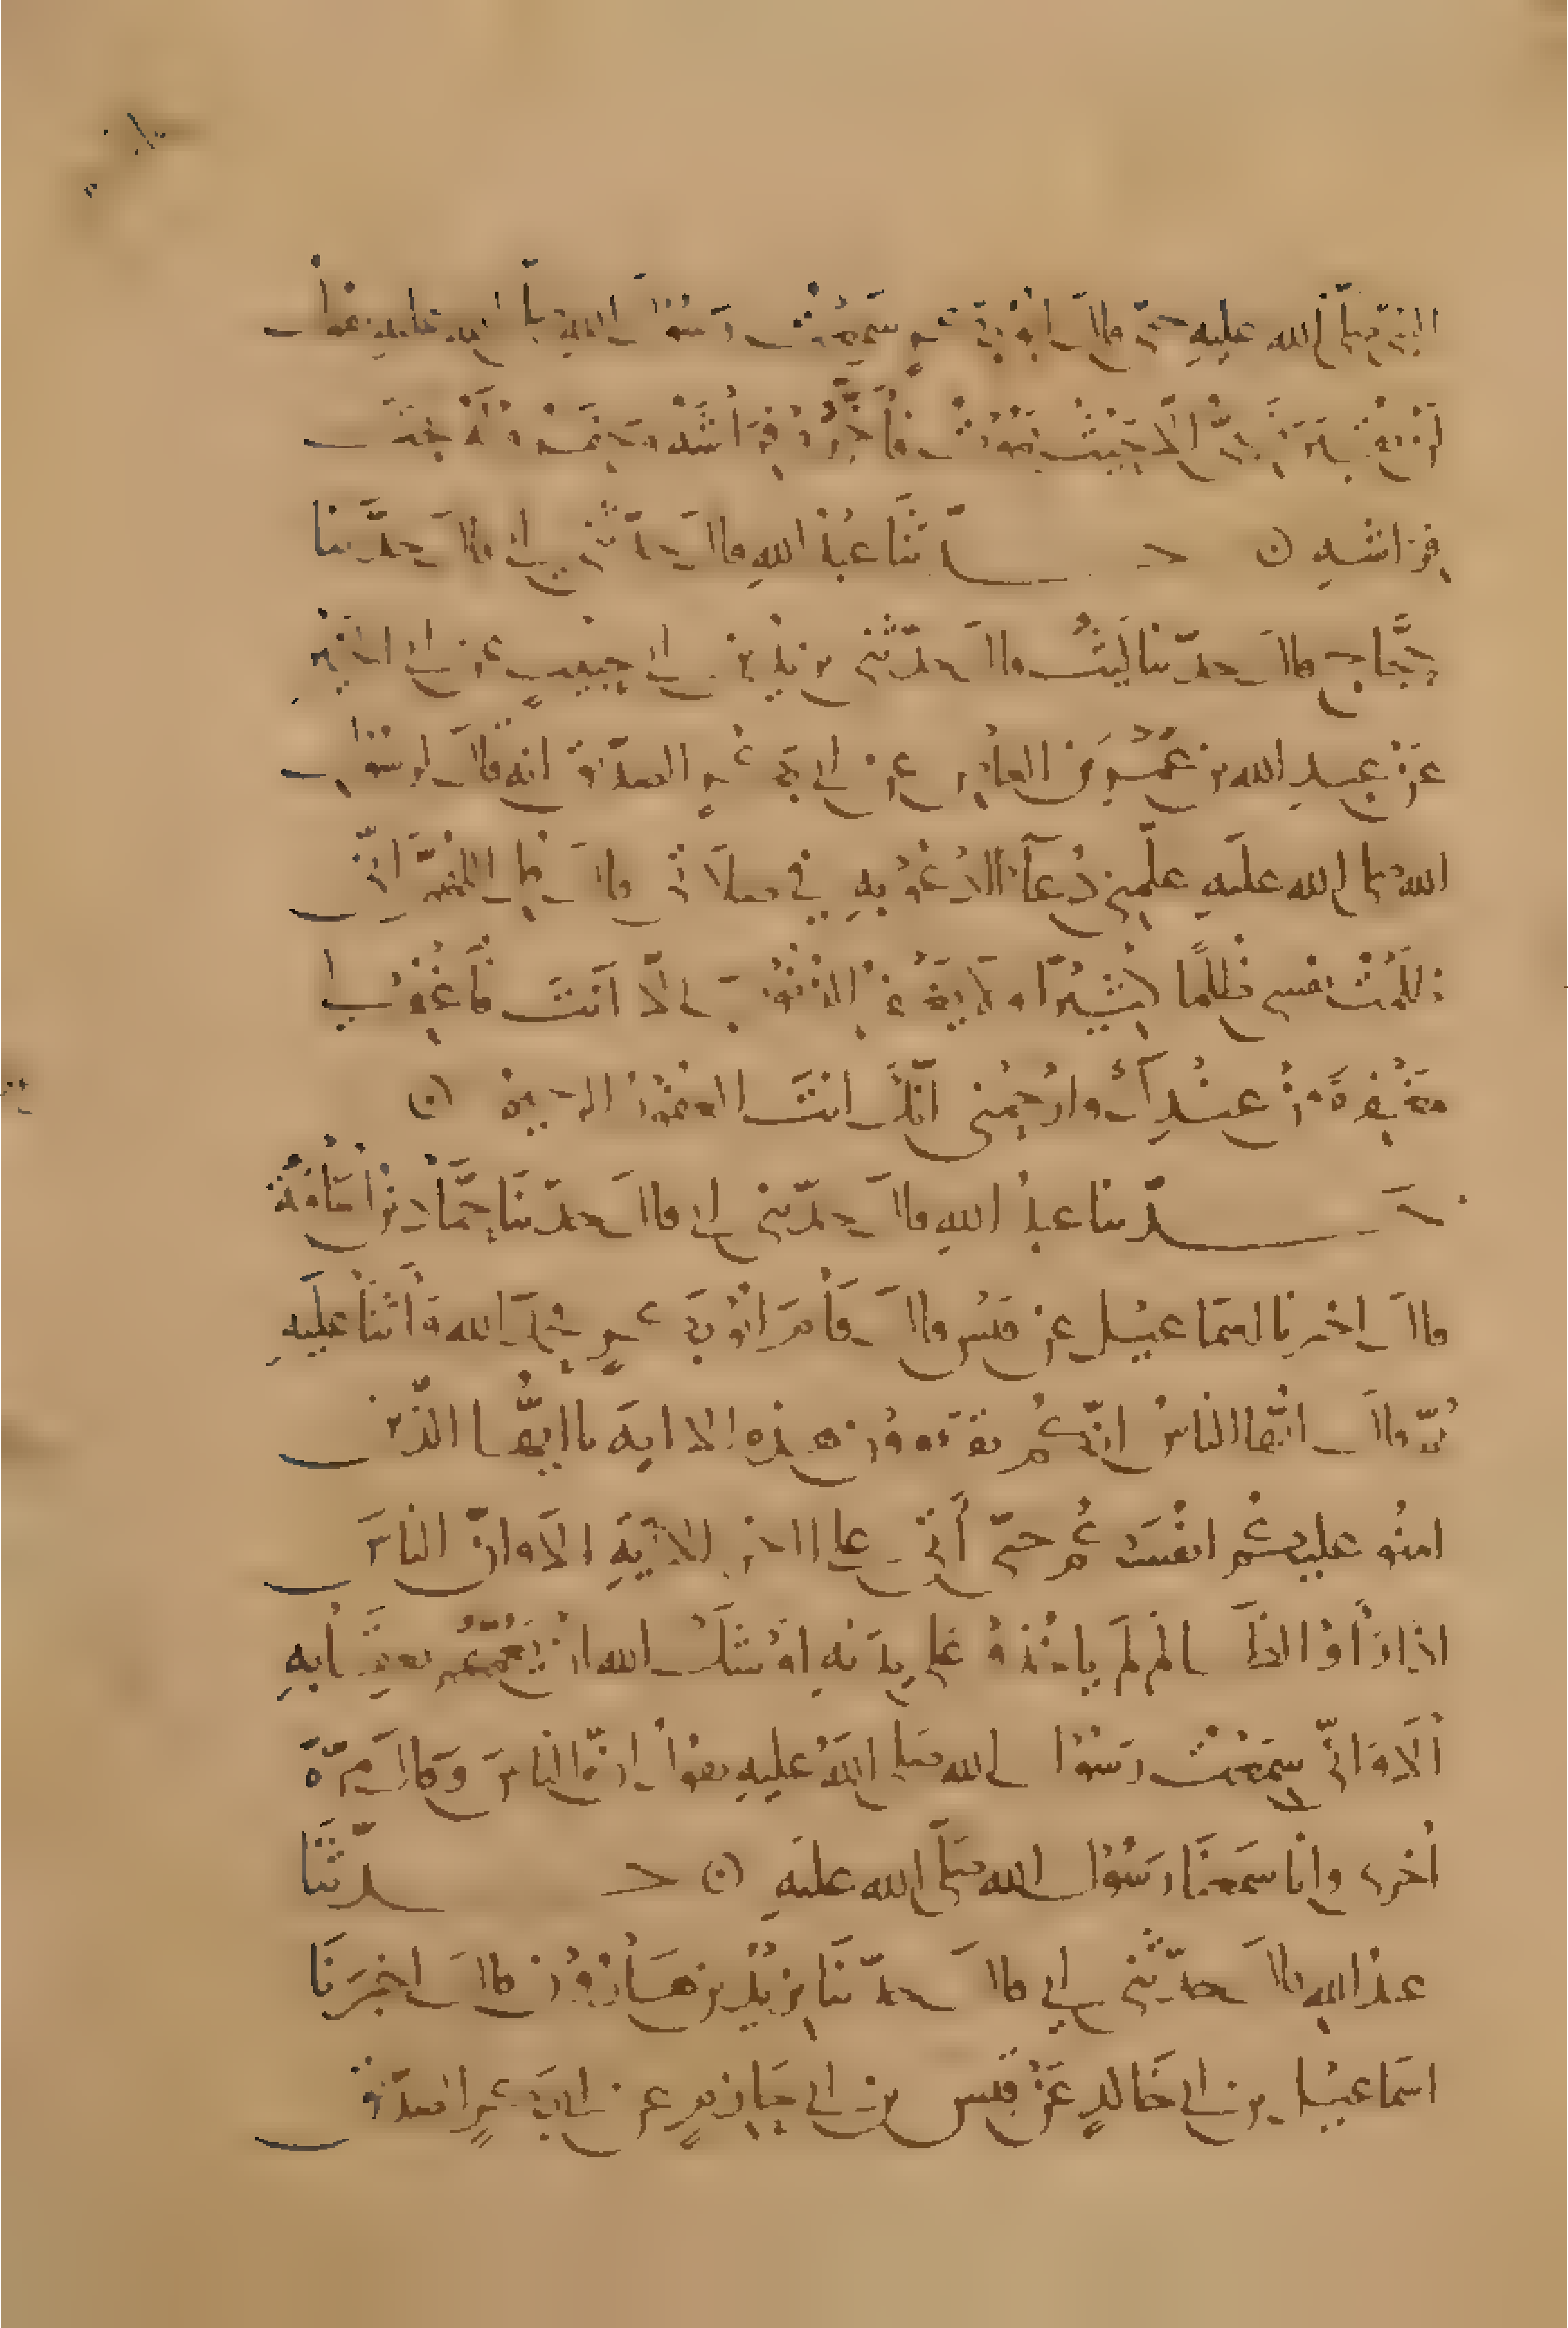 النبي صلى الله عليه حتى قال ابو بكر سمعت رسول الله صلى الله عليه يقول
لن يقبر نبي الا حيث يموت فأخروا فراشه وحفروا له تحت
فراشه ن
حدثنا عبد الله قال حدثني ابي قال حدثنا
حجاج قال حدثنا ليث قال حدثني يزيد بن ابي حبيب عن ابي الخير
عن عبد الله بن عمرو بن العاص عن ابي بكر الصديق انه قال لرسول
الله صلى الله عليه علمني دعاء ادعو به في صلاتي قال قل اللهم اني
ظلمت نفسي ظلما كثيرا ولا يغفر الذنوب الا انت فاغفر لي
مغفرة من عندك وارحمني انك انت الغفور الرحيم ن
حدثنا عبد الله قال حدثني ابي قال حدثنا حماد بن اسامة
قال اخبرنا اسماعيل عن قيس قال قام ابو بكر فحمد الله واثنا عليه
ثم قال ايها الناس انكم تقرءون هذه الاية يا ايها الذين
امنوا عليكم انفسكم حتى أتى على اخر الاية الا وان الناس
اذا رأوا الظالم لم ياخذوا على يديه اوشك الله ان يعمهم بعقابه
ألا واني سمعت رسول الله صلى الله عليه يقول ان الناس وقال مرة
أخرى وانا سمعنا رسول الله صلى الله عليه ن حدثنا
عبد الله قال حدثني ابي قال حدثنا يزيد بن هارون قال اخبرنا
اسماعيل بن ابي خالد عن قيس بن ابي حازم عن ابي بكر الصديق